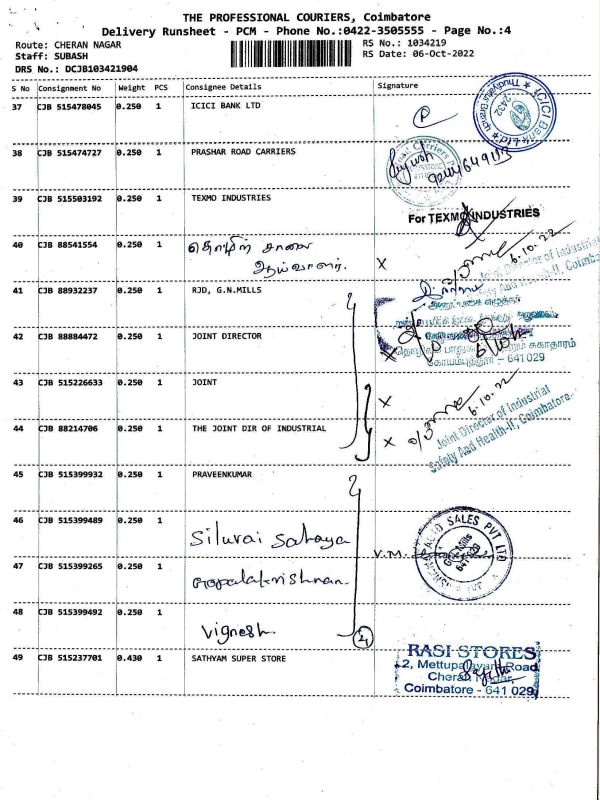 THE PROFESSIONAL COURIERS, Coimbatore
Delivery Runsheet - PCM - Phone No.:0422-3505555 - Page No.:4
Route: CHERAN NAGAR
RS No.: 1034219
Staff: SUBASH
RS Date: 06-Oct-2022
DRS No.: DCJB103421904
S No Consignment No Weight PCS Consignee Details Signature
37 CJB 515478045 0.250 1 ICICI BANK LTD
ICICI Bank Ltd
2432
38 CJB 515474727 0.250 1 PRASHAR ROAD CARRIERS
39 CJB 515503192 0.250 1 TEXMO INDUSTRIES
For TEXMO INDUSTRIES
40 CJB 88541554 0.250 1 தொழிற் சாலை
ஆய்வாளர். X
6.10.22
Joint Director of Industrial
Safety And Health-II, Coimbatore
41 CJB 88932237 0.250 1 RJD, G.N.MILLS
42 CJB 88884472 0.250 1 JOINT DIRECTOR X
கோயம்புத்தூர் - 641 029
43 CJB 515226633 0.250 1 JOINT X
6.10.22
44 CJB 88214706 0.250 1 THE JOINT DIR OF INDUSTRIAL X
Joint Director of Industrial
Safety And Health-II, Coimbatore.
45 CJB 515399932 0.250 1 PRAVEENKUMAR
46 CJB 515399489 0.250 1 Siluvai Sahaya
V.M.
SALES PVT LTD
641 029
47 CJB 515399265 0.250 1 Gopalakrishnan.
48 CJB 515399492 0.250 1 Vignesh.
4
49 CJB 515237701 0.430 1 SATHYAM SUPER STORE
RASI STORES
2, Mettupalayam Road
Cheran Nagar,
Coimbatore - 641 029